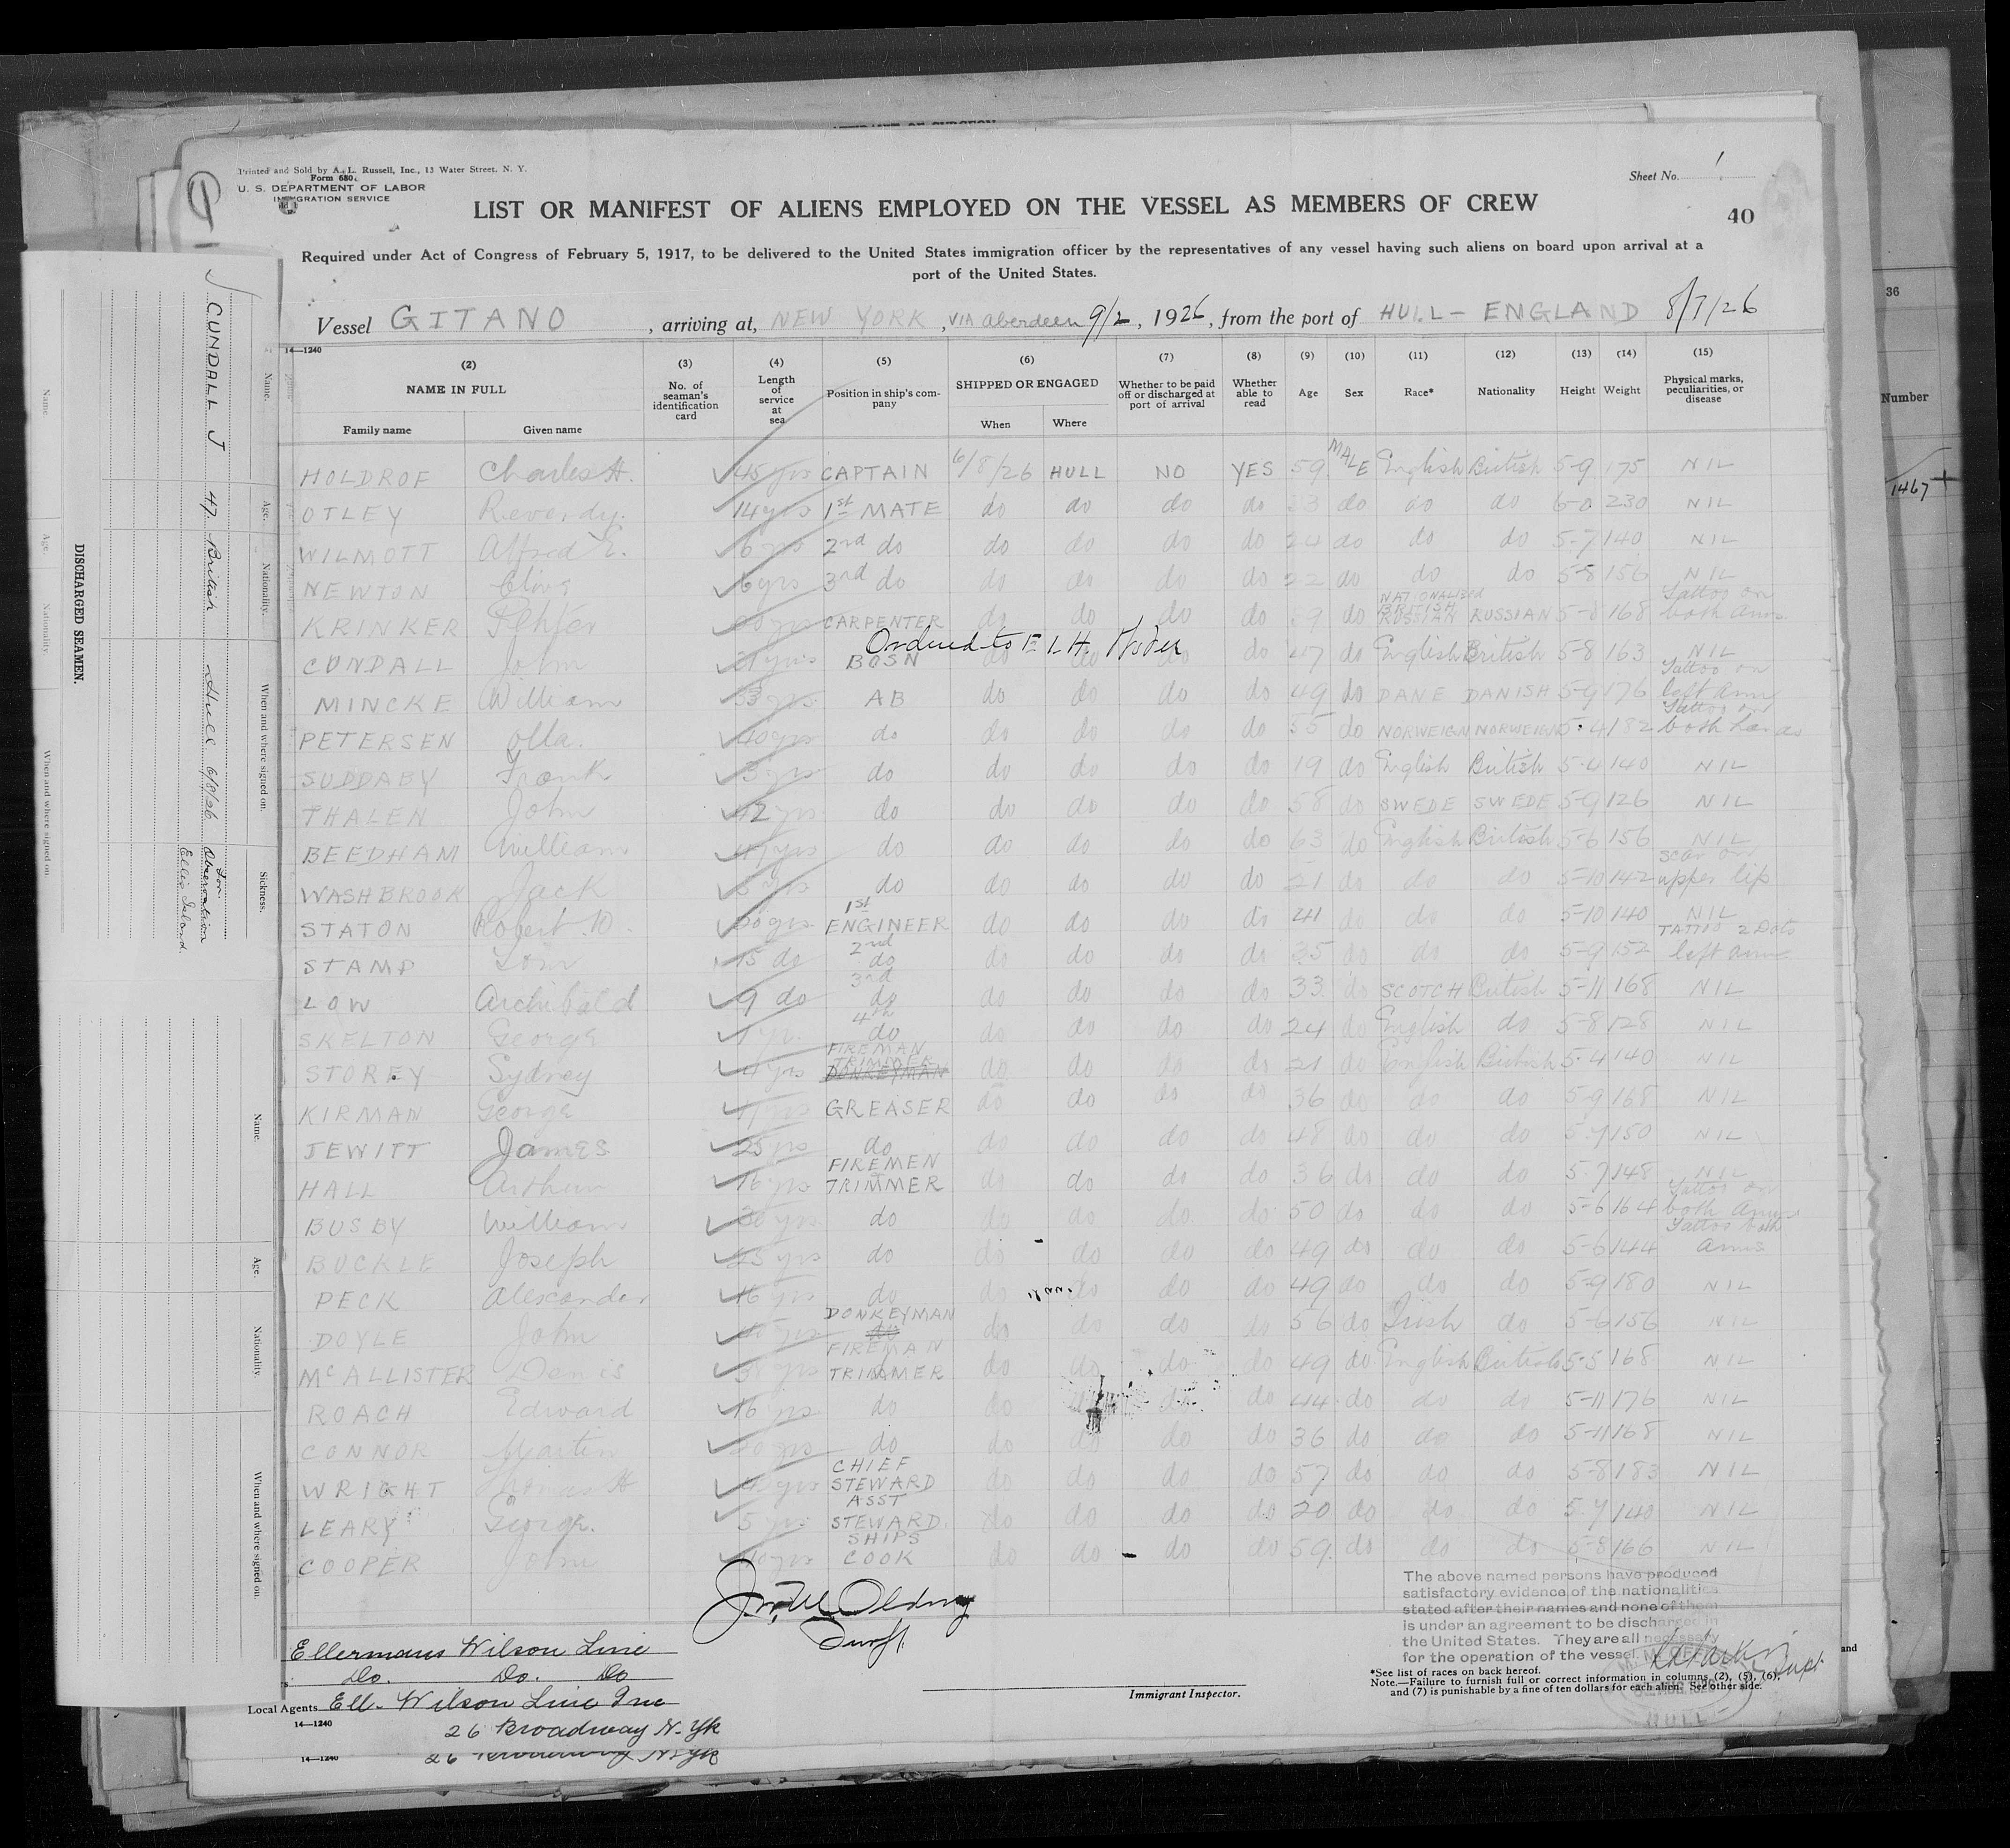 Printed and Sold by A. L. Russell, Inc., 13 Water Street, N. Y.
Form 680
U. S. DEPARTMENT OF LABOR
IMMIGRATION SERVICE
Sheet No. 1
LIST OR MANIFEST OF ALIENS EMPLOYED ON THE VESSEL AS MEMBERS OF CREW
40
Required under Act of Congress of February 5, 1917, to be delivered to the United States immigration officer by the representatives of any vessel having such aliens on board upon arrival at a
port of the United States.
Vessel GITANO, arriving at, NEW YORK, VIA Aberdeen 9/2, 1926, from the port of HULL - ENGLAND 8/7/26
14—1240
(2) (3) (4) (5) (6) (7) (8) (9) (10) (11) (12) (13) (14) (15)
NAME IN FULL No. of seaman's identification card Length of service at sea Position in ship's company SHIPPED OR ENGAGED Whether to be paid off or discharged at port of arrival Whether able to read Age Sex Race* Nationality Height Weight Physical marks, peculiarities, or disease
Family name Given name When Where
HOLDROF Charles H. 45 yrs CAPTAIN 6/8/26 HULL NO YES 59 MALE English British 5-9 175 NIL
OTLEY 14 yrs 1st MATE do do do do 33 do do do 6-0 230 NIL
WILMOTT Alfred E. 6 yrs 2nd do do do do do 24 do do do 5-7 140 NIL
NEWTON Clive 6 yrs 3rd do do do do do 22 do do do 5-8 156 NIL
KRINKER CARPENTER do do do do 59 do NATIONALIZED BRITISH RUSSIAN RUSSIAN 5-8 168 Tattoo on both arms
Ordered to E.I.H.
CUNDALL John BOSN do do do do 47 do English British 5-8 163 NIL
MINCKE William 33 yrs AB do do do do 49 do DANE DANISH 5-9 176 Tattoo on left arm
PETERSEN Olla. 20 yrs do do do do do 35 do NORWEIGN NORWEIGN 5-4 182 Tattoo on both hands
SUDDABY Frank 3 yrs do do do do do 19 do English British 5-4 140 NIL
THALEN John 42 yrs do do do do do 58 do SWEDE SWEDE 5-9 126 NIL
BEEDHAM William do do do do do 63 do English British 5-6 156 NIL
WASHBROOK Jack do do do do do 21 do do do 5-10 142 scar on upper lip
STATON Robert 1st ENGINEER do do do do 41 do do do 5-10 140 NIL
STAMP Tom 15 do 2nd do do do do do 35 do do do 5-9 152 TATTO 2 Dots left arm
LOW Archibald 9 do 3rd do do do do do 33 do SCOTCH British 5-11 168 NIL
SKELTON George 1 yr. 4th do do do do do 24 do English do 5-8 128 NIL
STOREY Sydney 4 yrs FIREMAN TRIMMER DONKEYMAN do do do do 21 do English British 5-4 140 NIL
KIRMAN George GREASER do do do do 36 do do do 5-9 168 NIL
JEWITT James 25 yrs do do do do do 48 do do do 5-7 150 NIL
HALL Arthur 16 yrs FIREMEN TRIMMER do do do do 36 do do do 5-7 148 NIL
BUSBY William 30 yrs do do do do do 50 do do do 5-6 164 Tattoo on both arms
BUCKLE Joseph 25 yrs do do do do do 49 do do do 5-6 144 Tattoo both arms
PECK Alexander 16 yrs do do do do do 49 do do do 5-9 180 NIL
DOYLE John DONKEYMAN do do do do do 56 do Irish do 5-6 156 NIL
McALLISTER Denis FIREMAN TRIMMER do do do do 49 do English British 5-5 168 NIL
ROACH Edward 16 yrs do do do do do 44 do do do 5-11 176 NIL
CONNOR Martin 20 yrs do do do do do 36 do do do 5-11 168 NIL
WRIGHT Thomas H CHIEF STEWARD do do do do 57 do do do 5-8 183 NIL
LEARY George. 5 yrs ASST STEWARD do do do do 20 do do do 5-7 140 NIL
COOPER John 40 yrs SHIPS COOK do do do do 59 do do do 5-8 166 NIL
The above named persons have produced
satisfactory evidence of the nationalities
stated after their names and none of them
is under an agreement to be discharged in
the United States. They are all necessary
for the operation of the vessel.
Ellermans Wilson Line
Do. Do. Do
Local Agents Ell. Wilson Line Inc
14—1240
26 Broadway N. Yk
Immigrant Inspector.
*See list of races on back hereof.
Note.—Failure to furnish full or correct information in columns (2), (5), (6),
and (7) is punishable by a fine of ten dollars for each alien. See other side.
HULL
14—1240
26 Broadway N. Yk
DISCHARGED SEAMEN.
Name. Age. Nationality. When and where signed on. Sickness.
CUNDALL J 47 British Hull 6/8/26 For Observation Ellis Island.
Name. Age. Nationality. When and where signed on.
Name. Age. Nationality. When and where signed on.
36
Number
1467
and